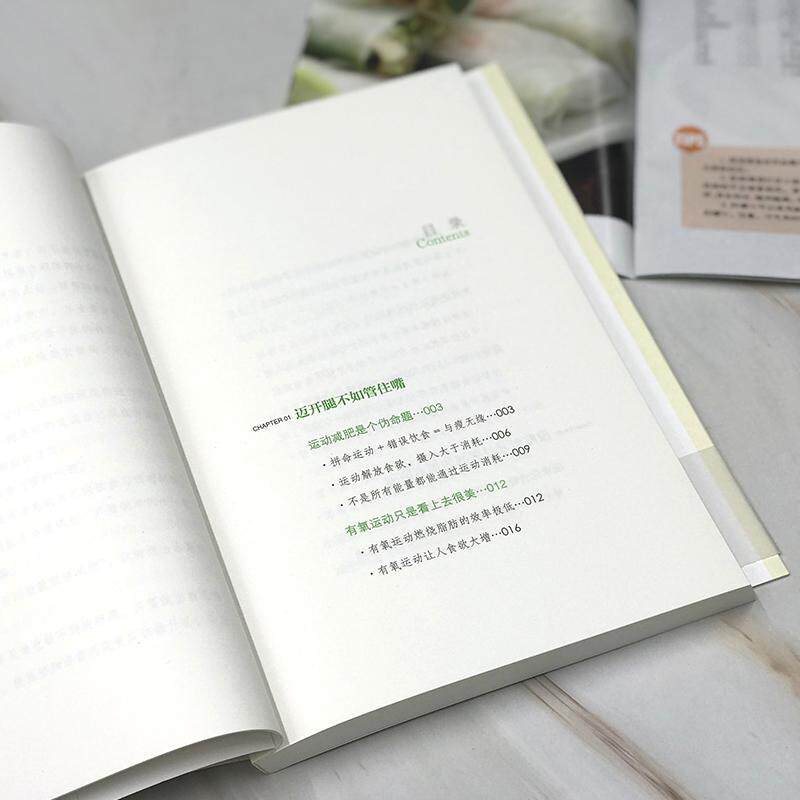 目 录
Contents
CHAPTER 01 迈开腿不如管住嘴
运动减肥是个伪命题…003
·拼命运动+错误饮食=与瘦无缘…003
·运动解放食欲，摄入大于消耗…006
·不是所有能量都能通过运动消耗…009
有氧运动只是看上去很美…012
·有氧运动燃烧脂肪的效率极低…012
·有氧运动让人食欲大增…016